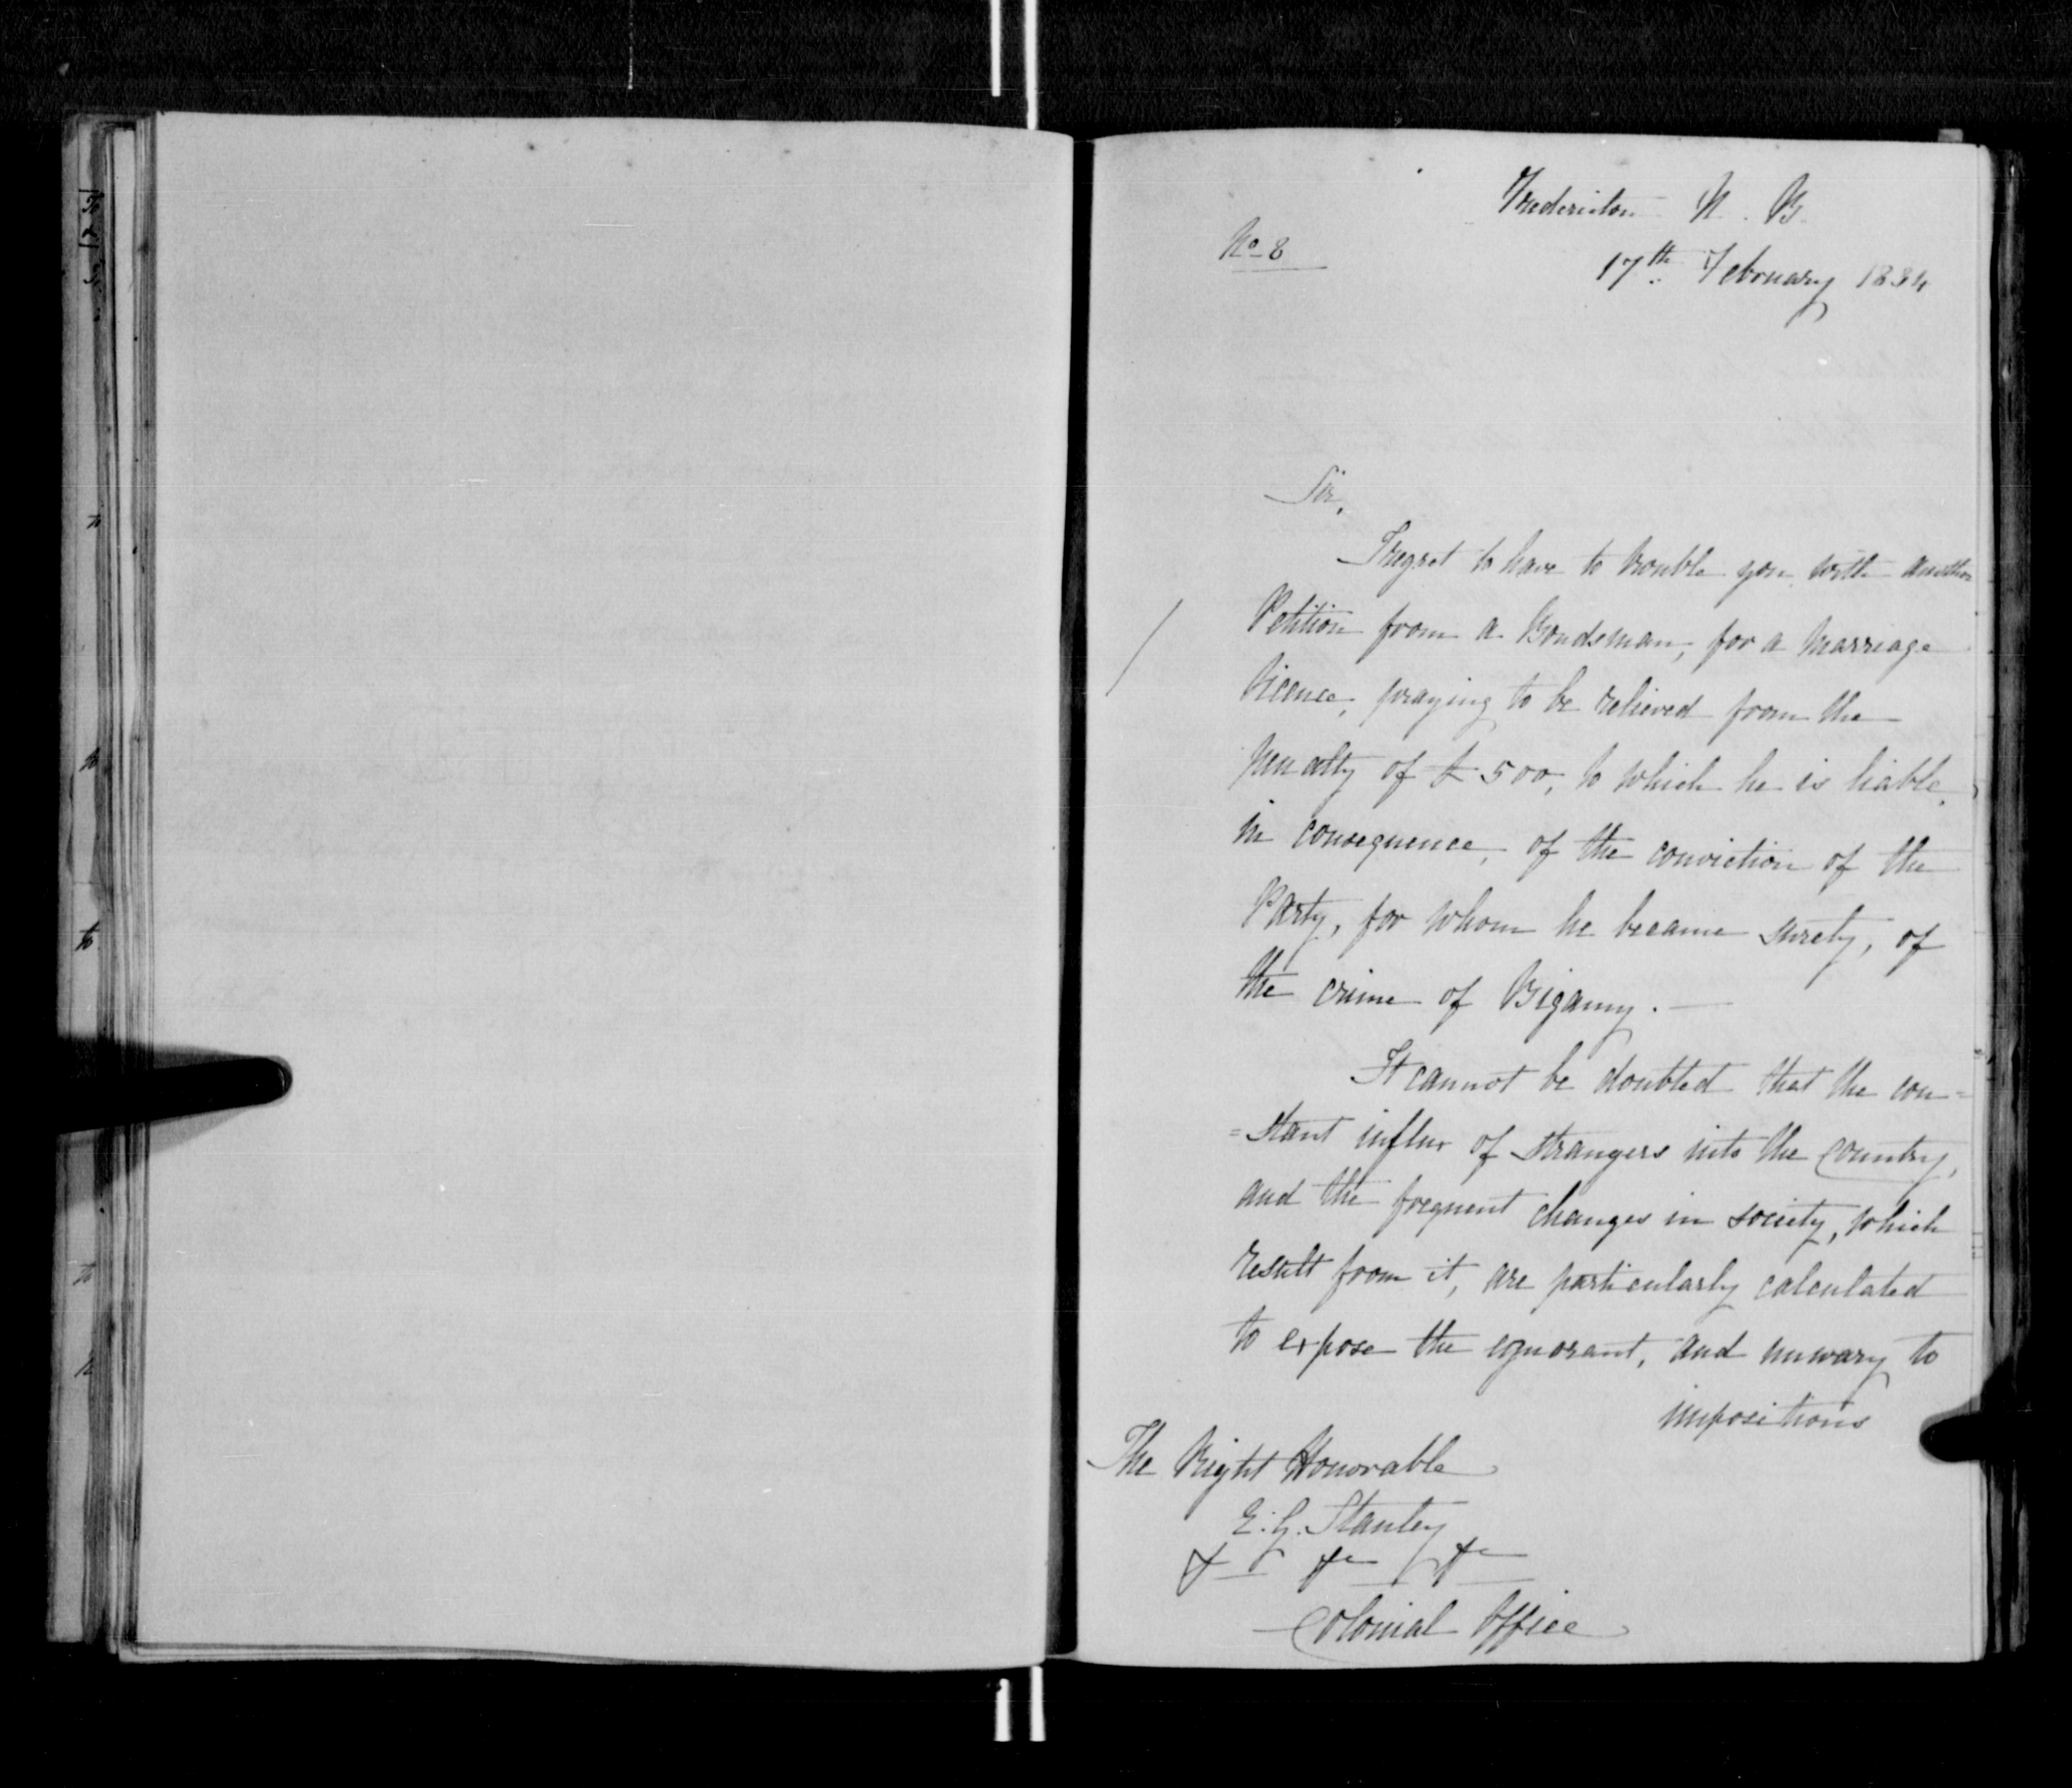 Fredericton N. B.
No 8
17th February 1834
Sir,
I regret to have to trouble you with another
Petition from a Bondsman, for a Marriage
Licence, praying to be relieved from the
penalty of £500, to which he is liable,
in consequence, of the conviction of the
Party, for whom he became surety, of
the crime of Bigamy. —
It cannot be doubted that the con=
=stant influx of strangers into the Country,
and the frequent changes in society, which
result from it, are particularly calculated
to expose the ignorant, and unwary to
impositions
The Right Honorable
E. G. Stanley
&c &c &c
Colonial Office